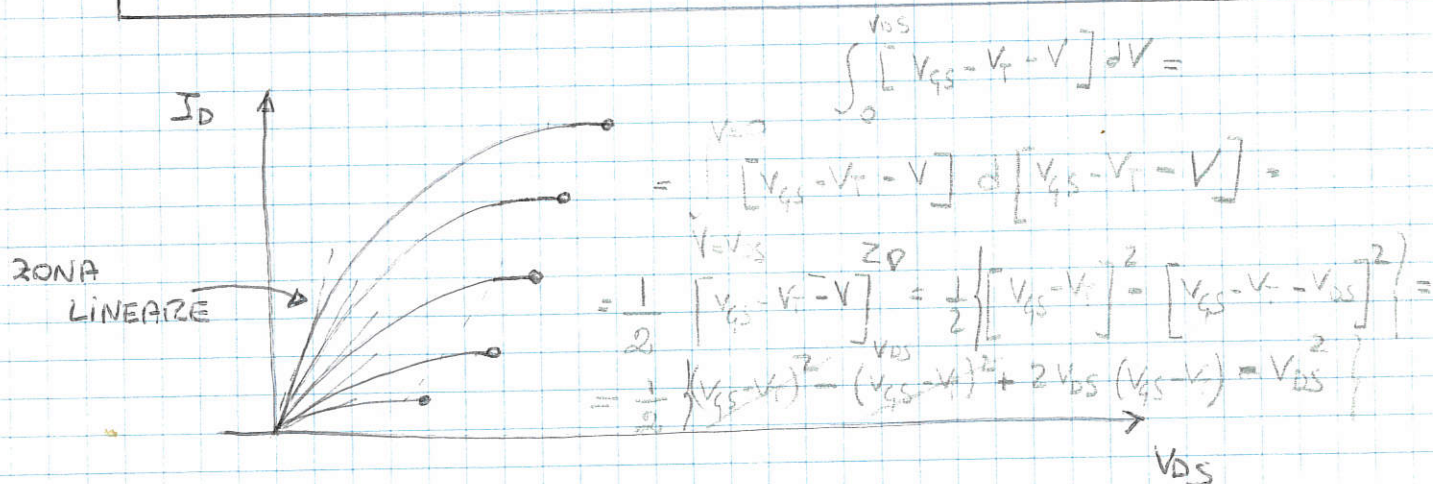 I_D
ZONA
LINEARE
V_DS
∫_0^{V_DS} [V_GS - V_T - V] dV =
= ∫_{V=V_DS}^{V=0} [V_GS - V_T - V] d[V_GS - V_T - V] =
= 1/2 [V_GS - V_T - V]^2 |_{V_DS}^0 = 1/2 {[V_GS - V_T]^2 - [V_GS - V_T - V_DS]^2} =
= 1/2 {(V_GS - V_T)^2 - (V_GS - V_T)^2 + 2 V_DS (V_GS - V_T) - V_DS^2}